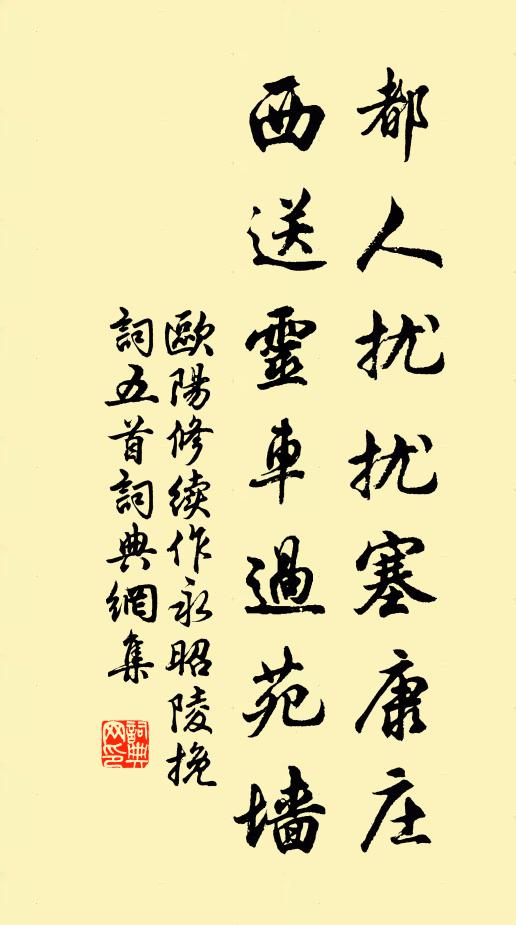 都人扰扰塞康庄
西送靈車過苑墙
歐陽修續作永昭陵挽
詞五首詞典網集
詞典
网印